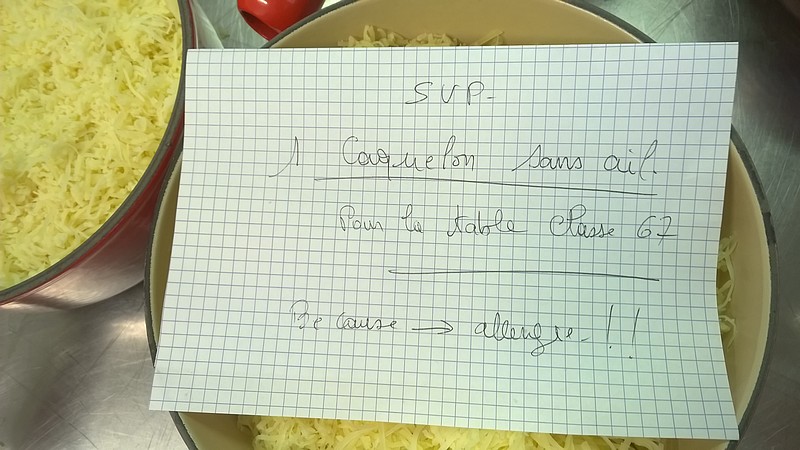 SVP-
1 Caquelon sans ail.
Pour la table Classe 67
Because → allergie-!!